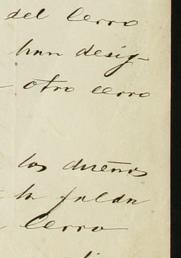 del cerro
han desig-
otro cerro
los dueños
la falda
cerro